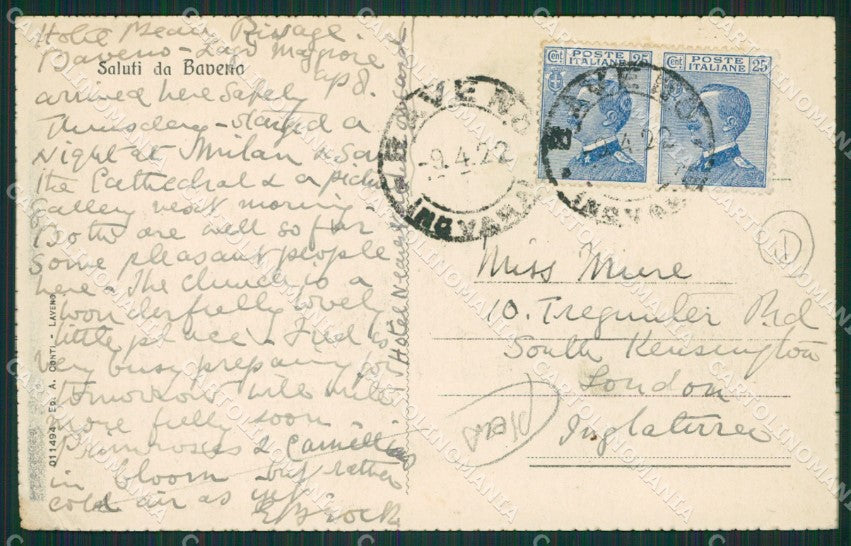 Hotel Beau Rivage.
Baveno - Lago Maggiore
Saluti da Baveno
ap 8.
arrived here safely
Thursday - stayed a
night at Milan & saw
the Cathedral & a picture
Gallery next morning -
Both are well so far
Some pleasant people
here - The church is a
wonderfully lovely
little place - Fred is
very busy preparing for
tomorrow will write
more fully soon
Primroses & Camellias
in bloom but rather
cold air as yet
E Brock
011494 - ED. A. CONTI - LAVENO
Cent POSTE ITALIANE 25
Cent POSTE ITALIANE 25
BAVENO
-9.4.22
(NOVARA)
BAVENO
4.22
(NOVARA)
Miss Mure
10. Tregunter Rd
South Kensington
London
Inglaterra
1